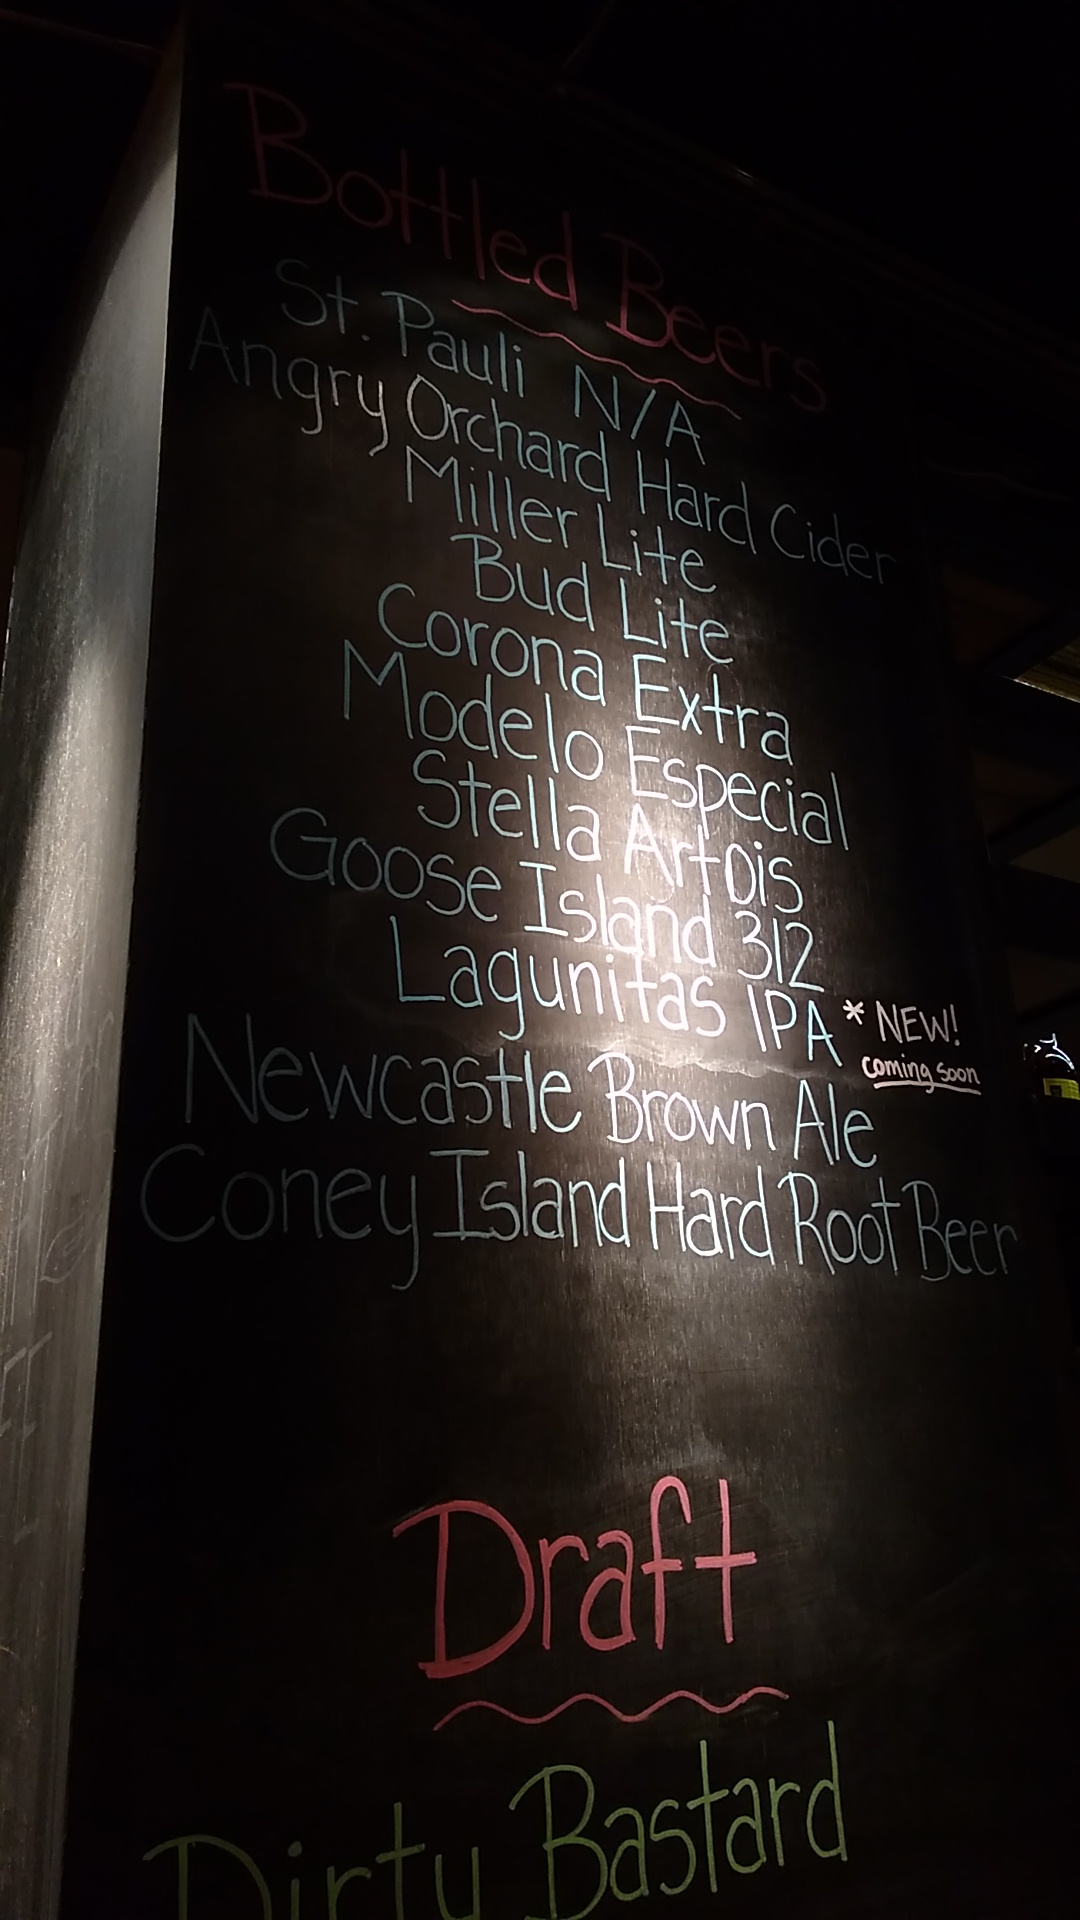 Bottled Beers
St. Pauli N/A
Angry Orchard Hard Cider
Miller Lite
Bud Lite
Corona Extra
Modelo Especial
Stella Artois
Goose Island 312
Lagunitas IPA * NEW!
coming soon
Newcastle Brown Ale
Coney Island Hard Root Beer
Draft
Dirty Bastard